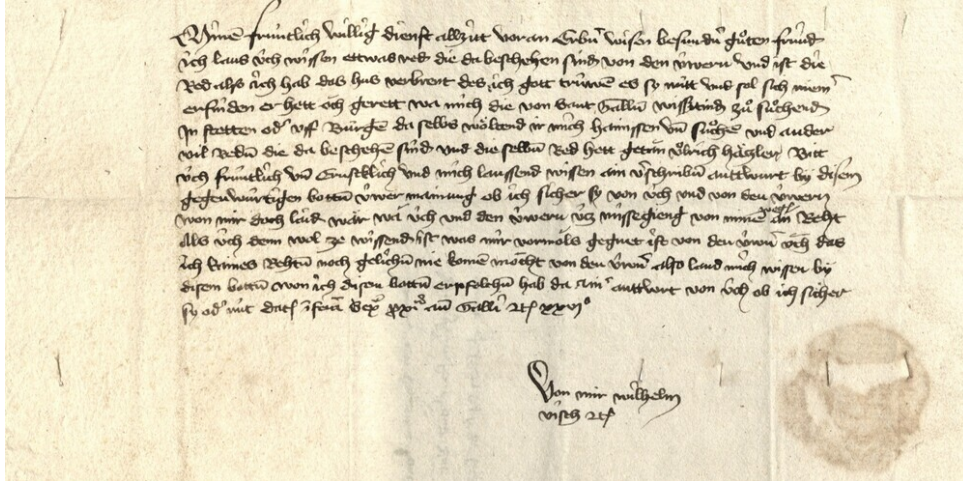 Minen fruntlich willig dienst allzit vor an Erbn̄ wisen besundn̄ gůten frund
ich laus v̈ch wissen ettwas red die da beschehen sind von den v̈wern vnd ist die
Red alss ich hab das hus verbrent des ich gott trúwen es so nútt vnd sol sich niem̄
erfinden er hett och gerett wa mich die von Sant Gallen wisstind zů sůchend
In stetten od' vff Búrgen da selbs wöltend ir mich haimssen vn̄ sůchen vnd ander
vil Redn̄ die da beschehen sind vnd die selbun Red hett getan v̊lrich hägler Bitt
v̈ch fruntlich vn̄ Ernstlich vnd mich laussend wissen am v̈schribn̄ anttwurt by disem
gegenwúrtigen bottn̄ v̈wer mainung ob ich sicher sy von v̈ch vnd von den v̈wern
won mir doch laid wär wa v̈ch vnd den v̈wern v̈tz missegieng von minen wegen an Reht
Als v̈ch denn wol ze wissend ist was mir vormols begegnet ist von den v̈wn̄ och das
ich kaines Rehtn̄ noch gelichn̄ nie komen mocht von den v̈wn̄ also land mich wissen by
disem bottn̄ won ich disen bottn̄ enpfolchn̄ hab da ain' anttwort von v̈ch ob ich sicher
sy od' nút dat feria sex an Galli xxvi°
Von mir wilhelm
visch